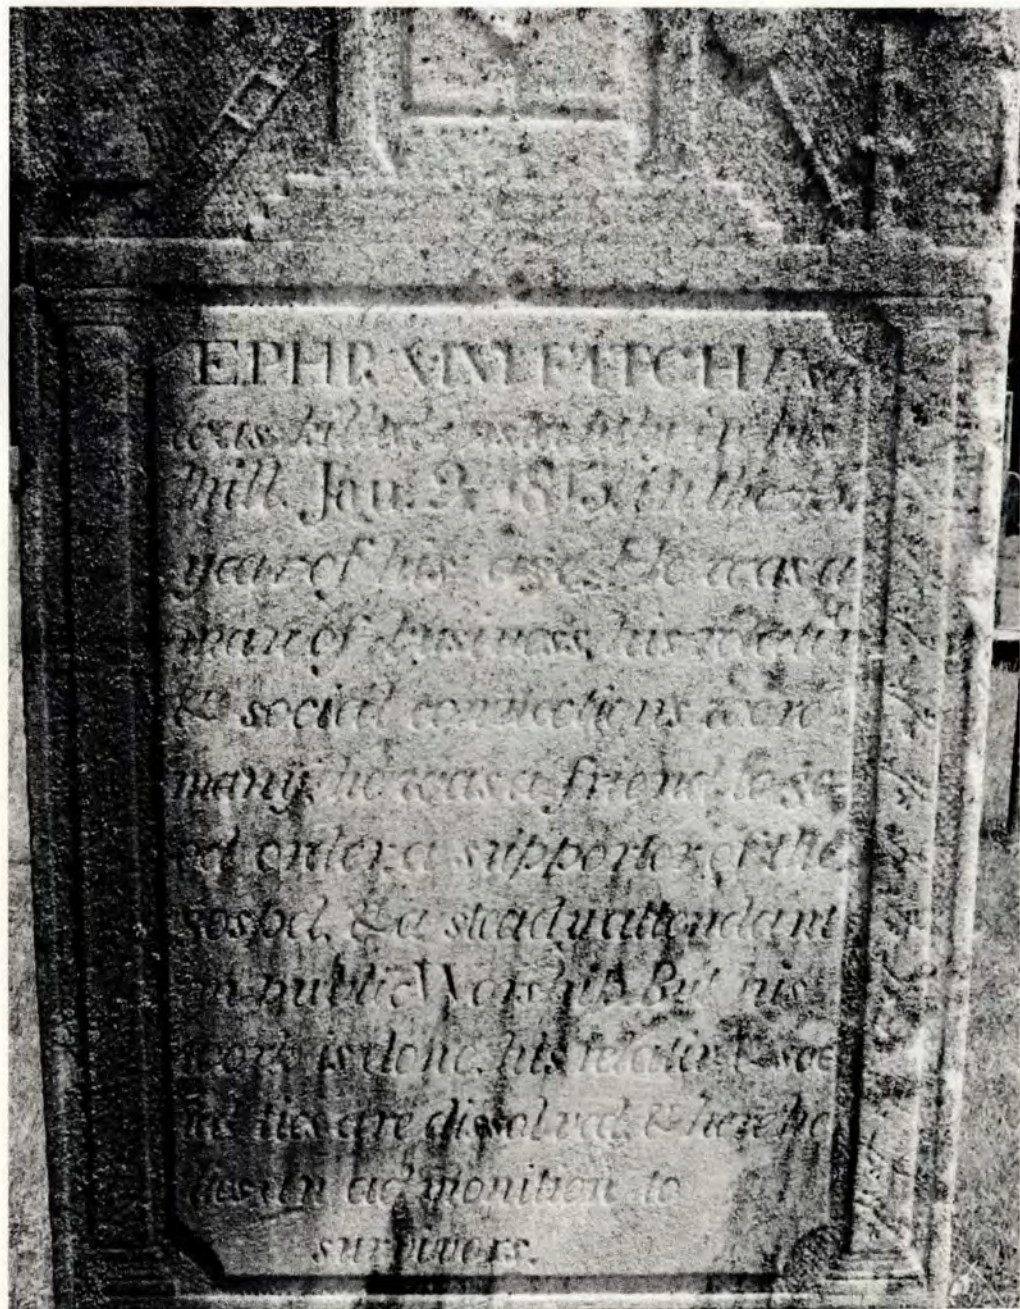 EPHRAIM FITCH
was kill'd instantly in his
Mill. Jan. 2. 1815. in the
year of his age. He was a
man of business, his relativ
& social connections were
many, he was a friend to go
od order, a supporter of the
gospel, & a steady attendant
on public Worship. But his
work is done, his relativ & soc
ial ties are dissolved, & here he
lies an admonition to
survivors.